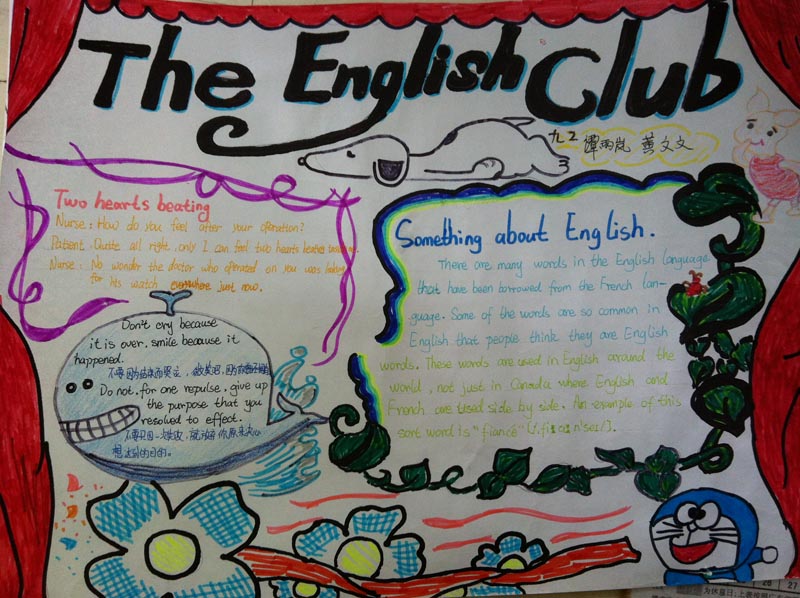 The English Club
九2 谭雨岚 黄文文
Two hearts beating
Nurse: How do you feel after your operation?
Patient: Quite all right, only I can feel two hearts beating
Nurse: No wonder the doctor who operated on you was looking
for his watch everywhere just now.
Something about English.
There are many words in the English language
that have been borrowed from the French lan-
guage. Some of the words are so common in
English that people think they are English
words. These words are used in English around the
world, not just in Canada where English and
French are used side by side. An example of this
sort word is "fiancé"
Don't cry because
it is over, smile because it
happened.
不要因为结束而哭泣，微笑吧，因为
Do not, for one repulse, give up
the purpose that you
resolved to effect.
不要只因一次失败，就放弃你原来决心
想达到的目的。